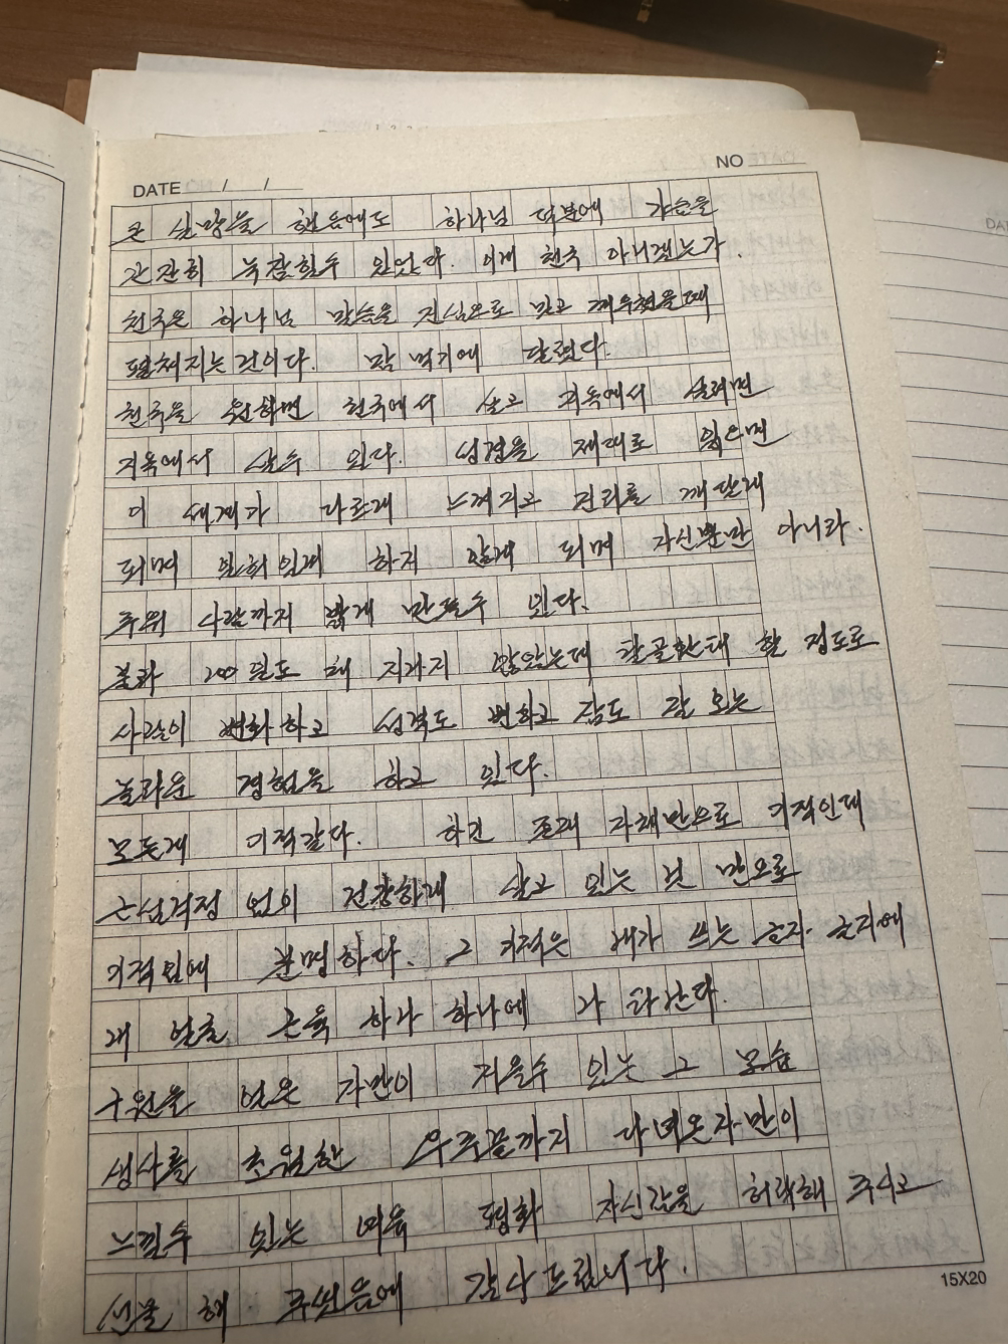 NO
DATE / /
큰 실망을 했음에도 하나님 덕분에 가슴을
잔잔히 녹잠힐수 있었다. 이게 천국 아니겠는가.
천국은 하나님 말씀을 진심으로 믿고 깨우쳤을때
펼쳐지는것이다. 맘 먹기에 달렸다.
천국을 원하면 천국에서 살고 지옥에서 살려면
지옥에서 살수 있다. 성경을 제대로 읽으면
이 세계가 다르게 느껴지고 진리를 깨닫게
되며 일희일게 하지 않게 되며 자신뿐만 아니라.
주위 사람까지 밝게 만들수 있다.
불과 200일도 채 지나지 않았는데 환골환태 할 정도로
사람이 변화하고 성격도 변하고 잠도 잘 오는
놀라운 경험을 하고 있다.
모든게 기적같다. 하긴 존재 자체만으로 기적인데
근심걱정 없이 건강하게 살고 있는 것 만으로
기적임에 분명하다. 그 기적은 내가 쓰는 글자. 글귀에
내 얼굴 근육 하나 하나에 다 나타난다.
구원을 얻은 자만이 지을수 있는 그 모습
생사를 초월한 우주끝까지 다녀온자만이
느낄수 있는 여유 평화 자신감을 허락해 주시고
선물 해 주셨음에 감사드립니다.
15X20